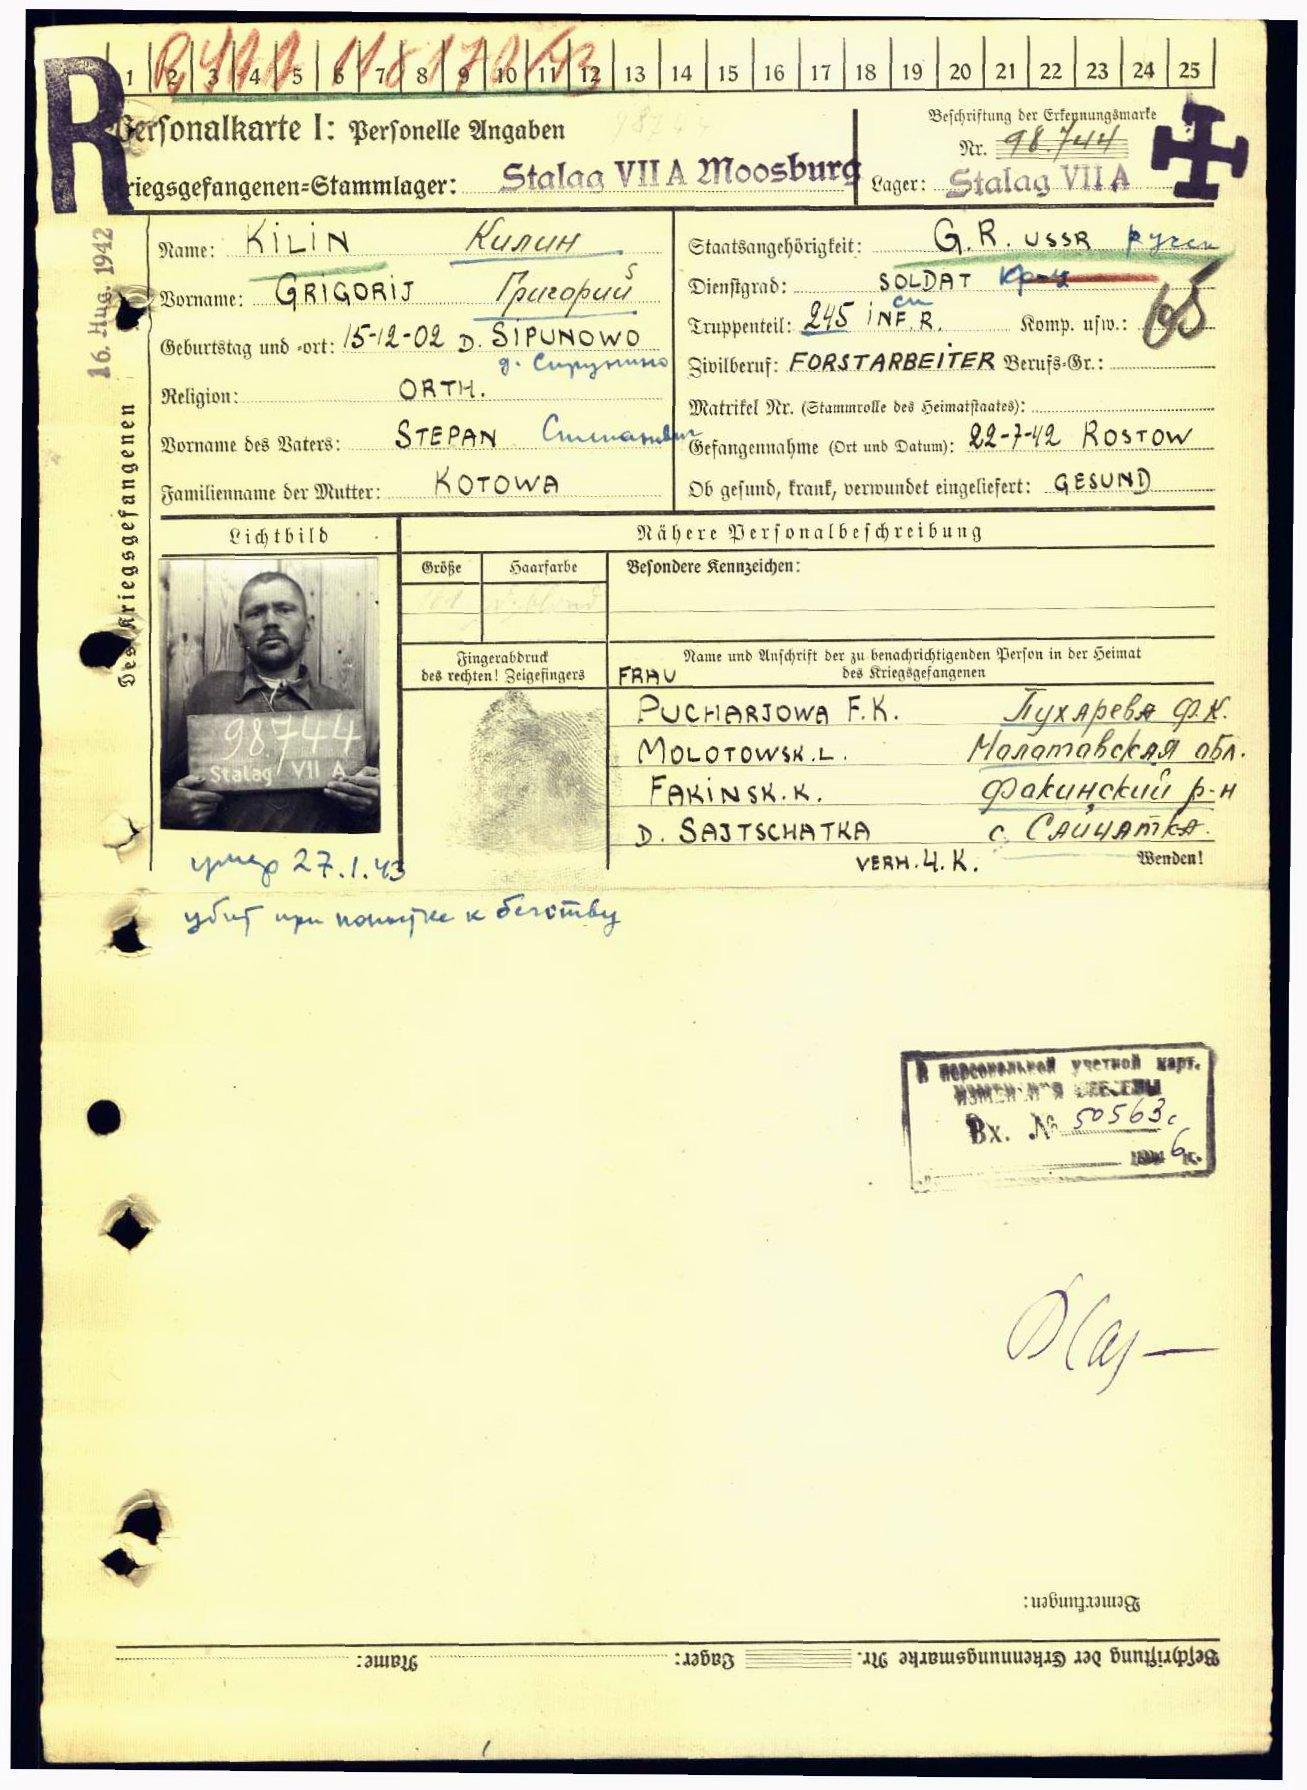 R
1 2 3 4 5 6 7 8 9 10 11 12 13 14 15 16 17 18 19 20 21 22 23 24 25
Personalkarte I: Personelle Angaben
98744
Beschriftung der Erkennungsmarke
Nr. 98.744
Kriegsgefangenen-Stammlager: Stalag VII A Moosburg
Lager: Stalag VII A
16. Aug. 1942
Des Kriegsgefangenen
Name: KILIN Килин
Vorname: GRIGORIJ Григорий
Geburtstag und -ort: 15-12-02 D. SIPUNOWO
Religion: ORTH.
Vorname des Vaters: STEPAN Степанович
Familienname der Mutter: KOTOWA
Staatsangehörigkeit: G.R. USSR русск
Dienstgrad: SOLDAT кр-ц
Truppenteil: 245 INF. R. Komp. usw.:
сп
Zivilberuf: FORSTARBEITER Berufs-Gr.:
Matrikel Nr. (Stammrolle des Heimatstaates):
Gefangennahme (Ort und Datum): 22-7-42 ROSTOW
Ob gesund, krank, verwundet eingeliefert: GESUND
Lichtbild
Nähere Personalbeschreibung
Größe
Haarfarbe
Besondere Kennzeichen:
98744
Stalag VII A
Fingerabdruck
des rechten! Zeigefingers
Name und Anschrift der zu benachrichtigenden Person in der Heimat
des Kriegsgefangenen
FRAU
PUCHARJOWA F.K. Пухарева Ф.К.
MOLOTOWSK.L. Молатавская обл.
FAKINSK.K. Факинский р-н
D. SAJTSCHATKA с. Сайчатка.
VERH. 4. K.
Wenden!
умер 27.1.43
убит при попытке к бегству
В персональной учетной карт.
Вх. № 50563с
Bemerkungen:
Beschriftung der Erkennungsmarke Nr. Lager: Name: